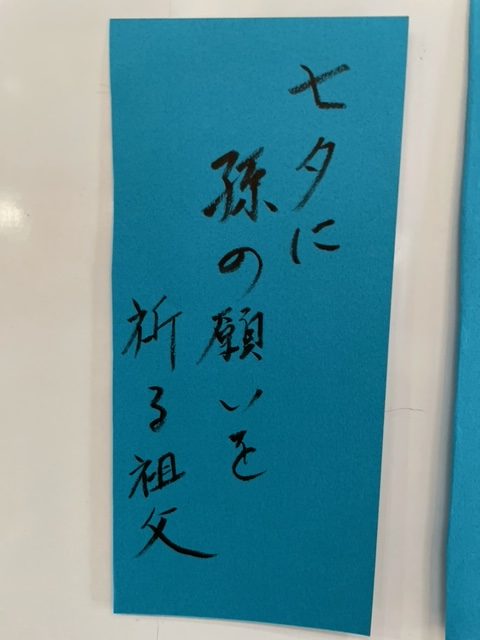 七夕に
孫の願いを
祈る祖父